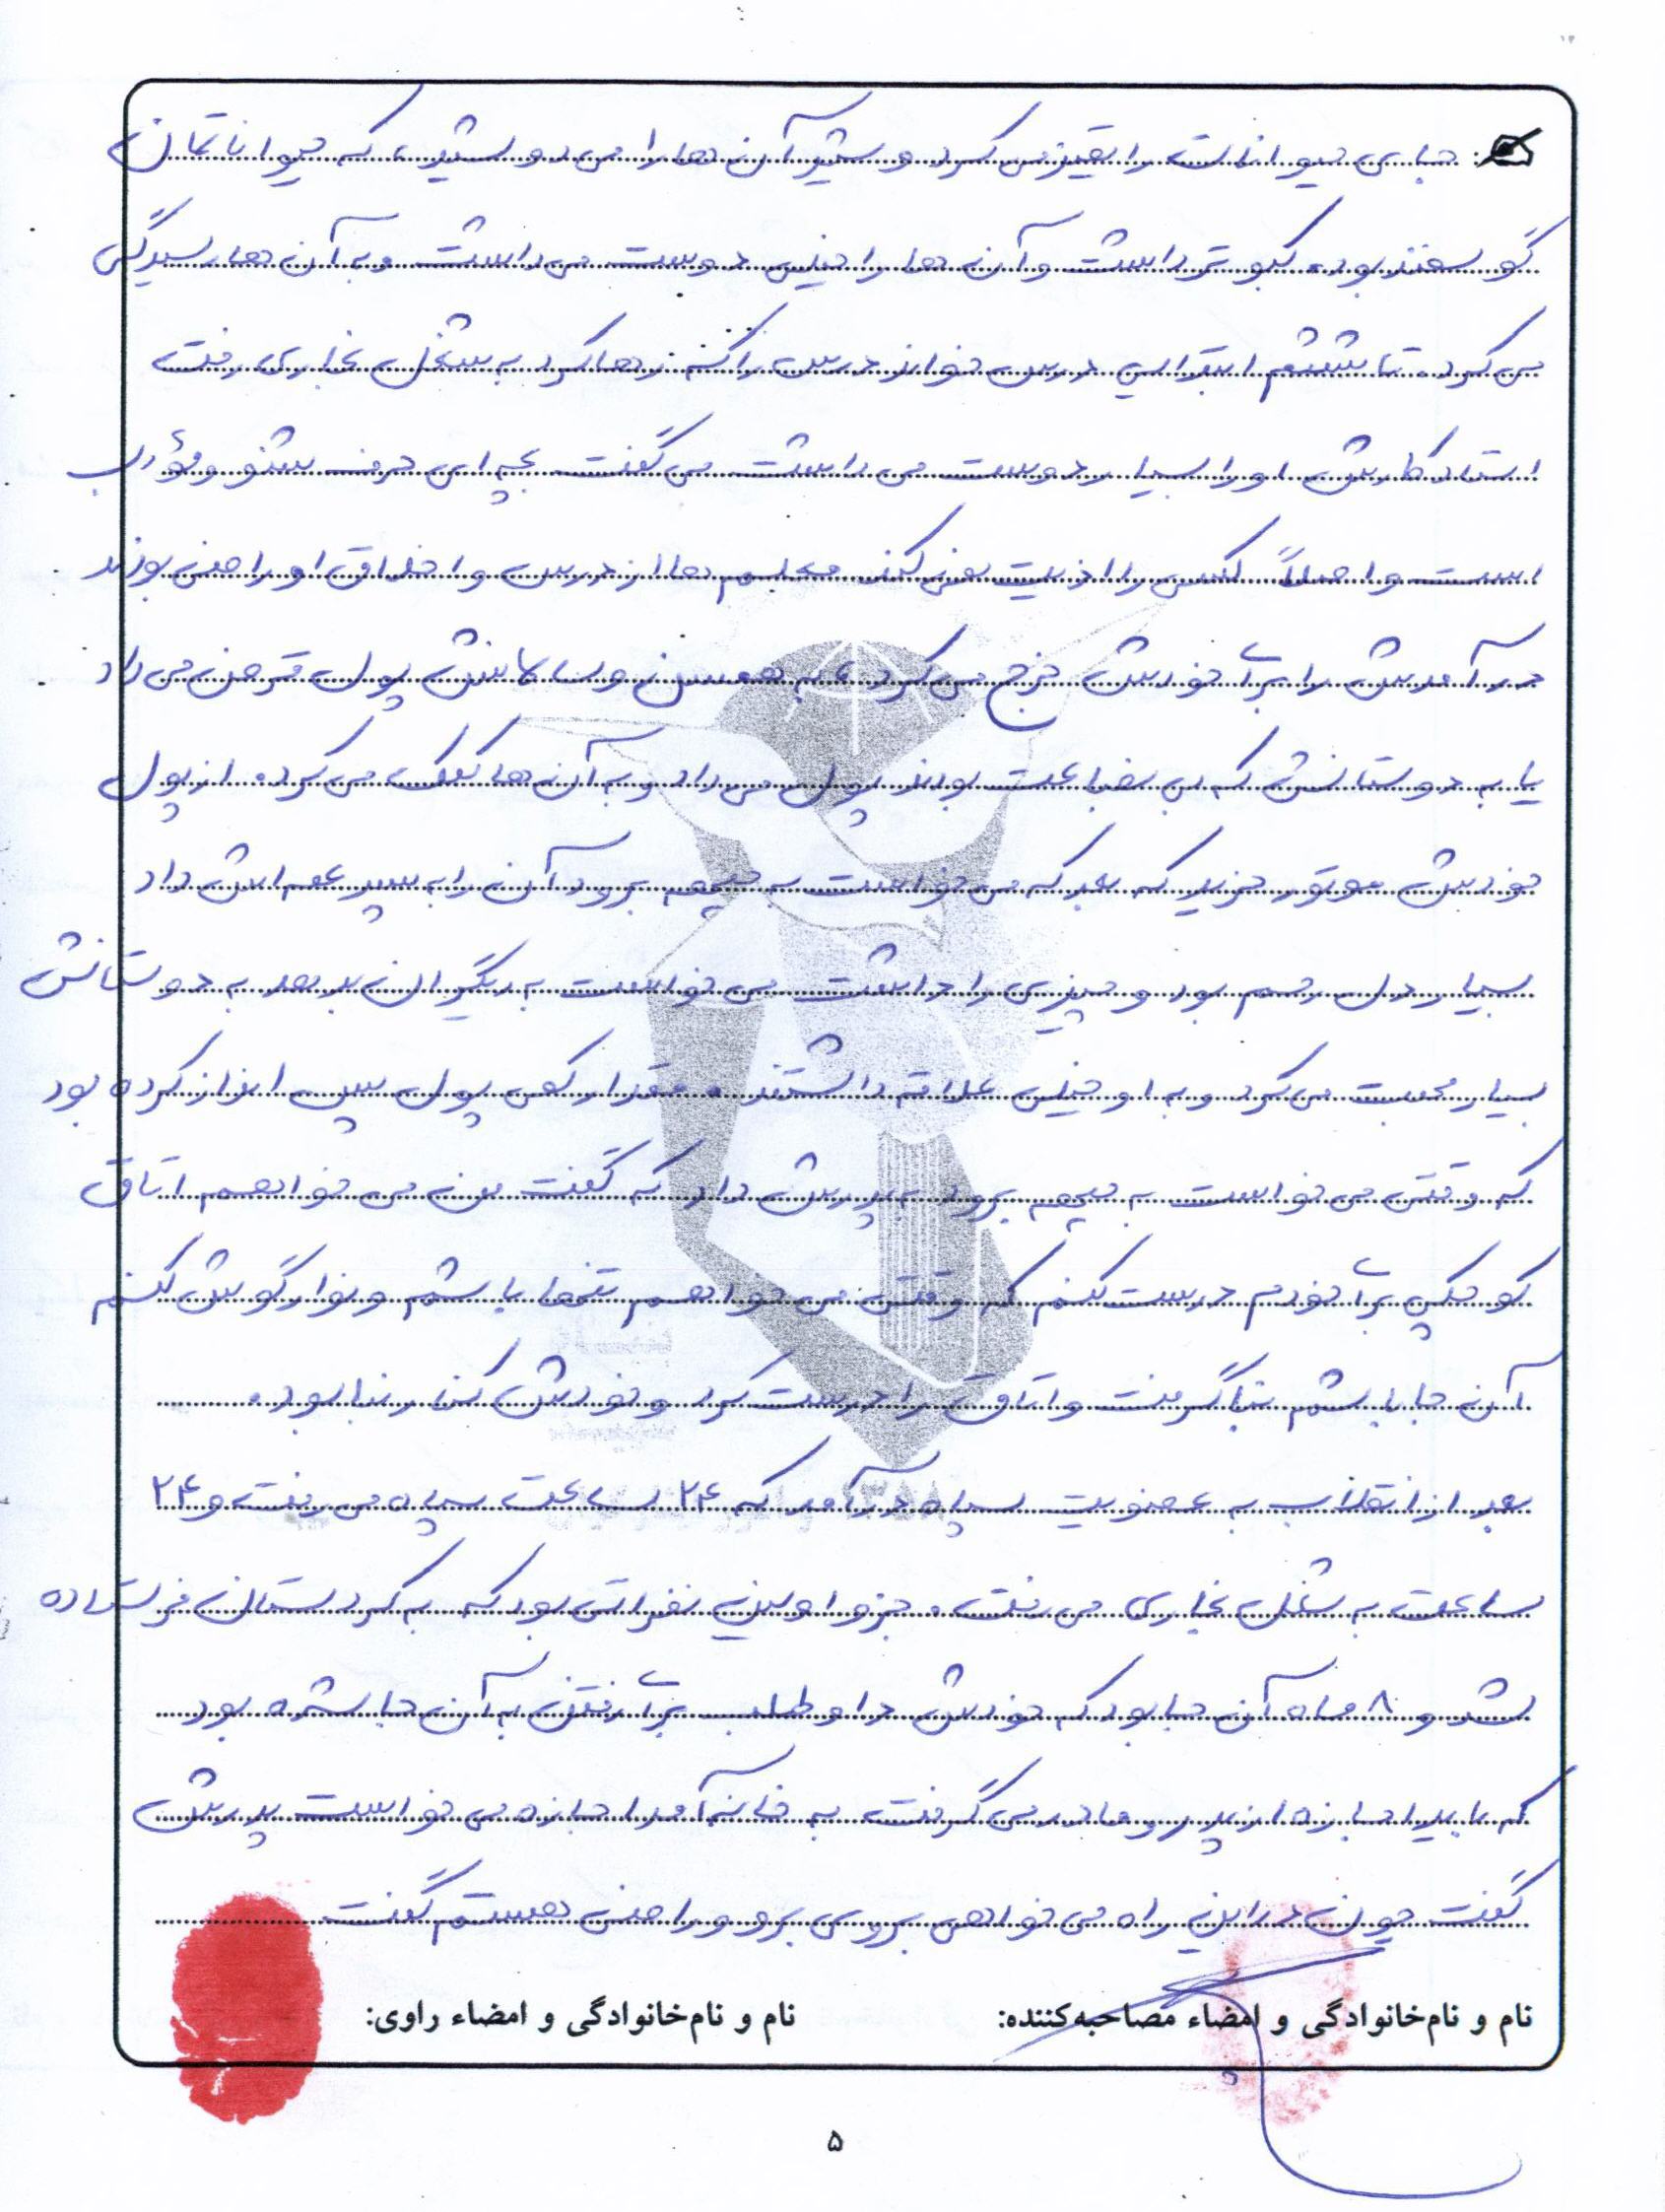 جای حیوانات را تمیز می کرد و شیر آن ها را می دوشید، که حیواناتمان
گوسفند بود. کبوتر داشت و آن ها را خیلی دوست می داشت و به آن ها رسیدگی
می کرد. تا ششم ابتدایی درس خواند درس را که رها کرد به شغل نجاری رفت
استاد کارش او را بسیار دوست می داشت می گفت بچه ای حرف شنو و مؤدب
است و اصلاً کسی را اذیت نمی کند معلم ها از درس و اخلاق او راضی بودند
درآمدش را برای خودش خرج می کرد، به همسن و سالانش پول قرض می داد
یا به دوستانش که بی بضاعت بودند پول می داد و به آن ها کمک می کرد. از پول
خودش موتور خرید که بعد که می خواست به جبهه برود آن را به پسر عمه اش داد
بسیار دل رحم بود و چیزی را داشت می خواست به دیگران بدهد به دوستانش
بسیار محبت می کرد و به او خیلی علاقه داشتند. مقدار کمی پول پس انداز کرده بود
که وقتی می خواست به جبهه برود به پدرش داد که گفت من می خواهم اتاق
کوچکی برای خودم درست کنم که وقتی می خواهم تنها باشم و نوار گوش کنم
آن جا باشم بنا گرفت و اتاق را درست کرد و خودش کنار بنا بود.
بعد از انقلاب به عضویت سپاه درآمد که ۲۴ ساعت سپاه می رفت و ۲۴
ساعت به شغل نجاری می رفت. جزو اولین نفراتی بود که به کردستان فرستاده
شد و ۸ ماه آن جا بود که خودش داوطلب برای رفتن به آن جا شده بود
که باید اجازه از پدر و مادر می گرفت به خانه آمد اجازه می خواست پدرش
گفت چون در این راه می خواهی بروی برو و راضی هستم گفت
نام و نام‌خانوادگی و امضاء مصاحبه‌کننده: نام و نام‌خانوادگی و امضاء راوی:
۵